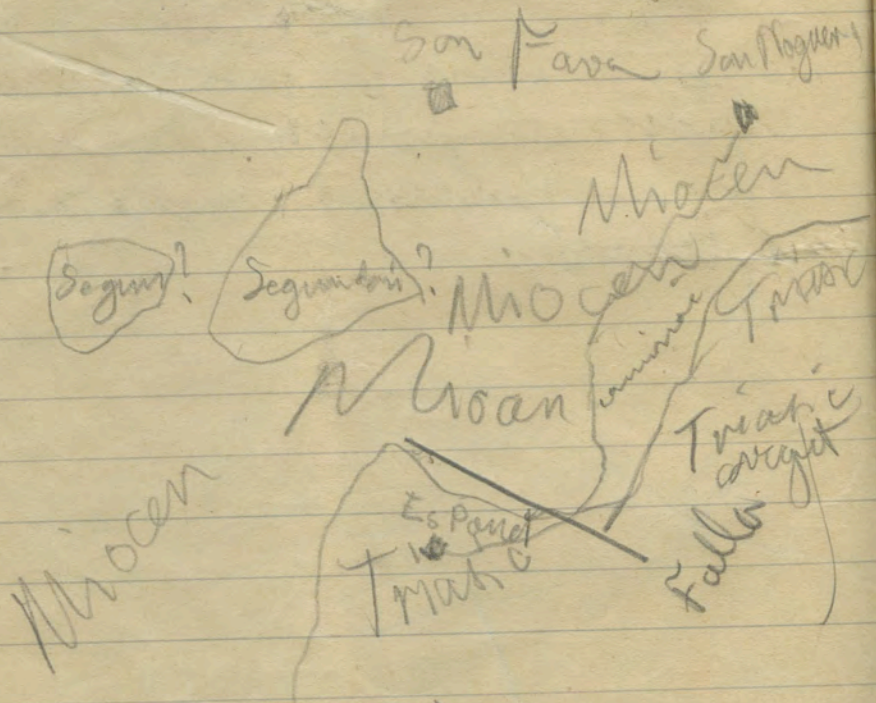 Son Fava
Son Noguera
Miocen
Segun?
Segundari?
Miocen
Triasic
Miocen
Triasic
Es Pouet
Triasic
Falla
Miocen